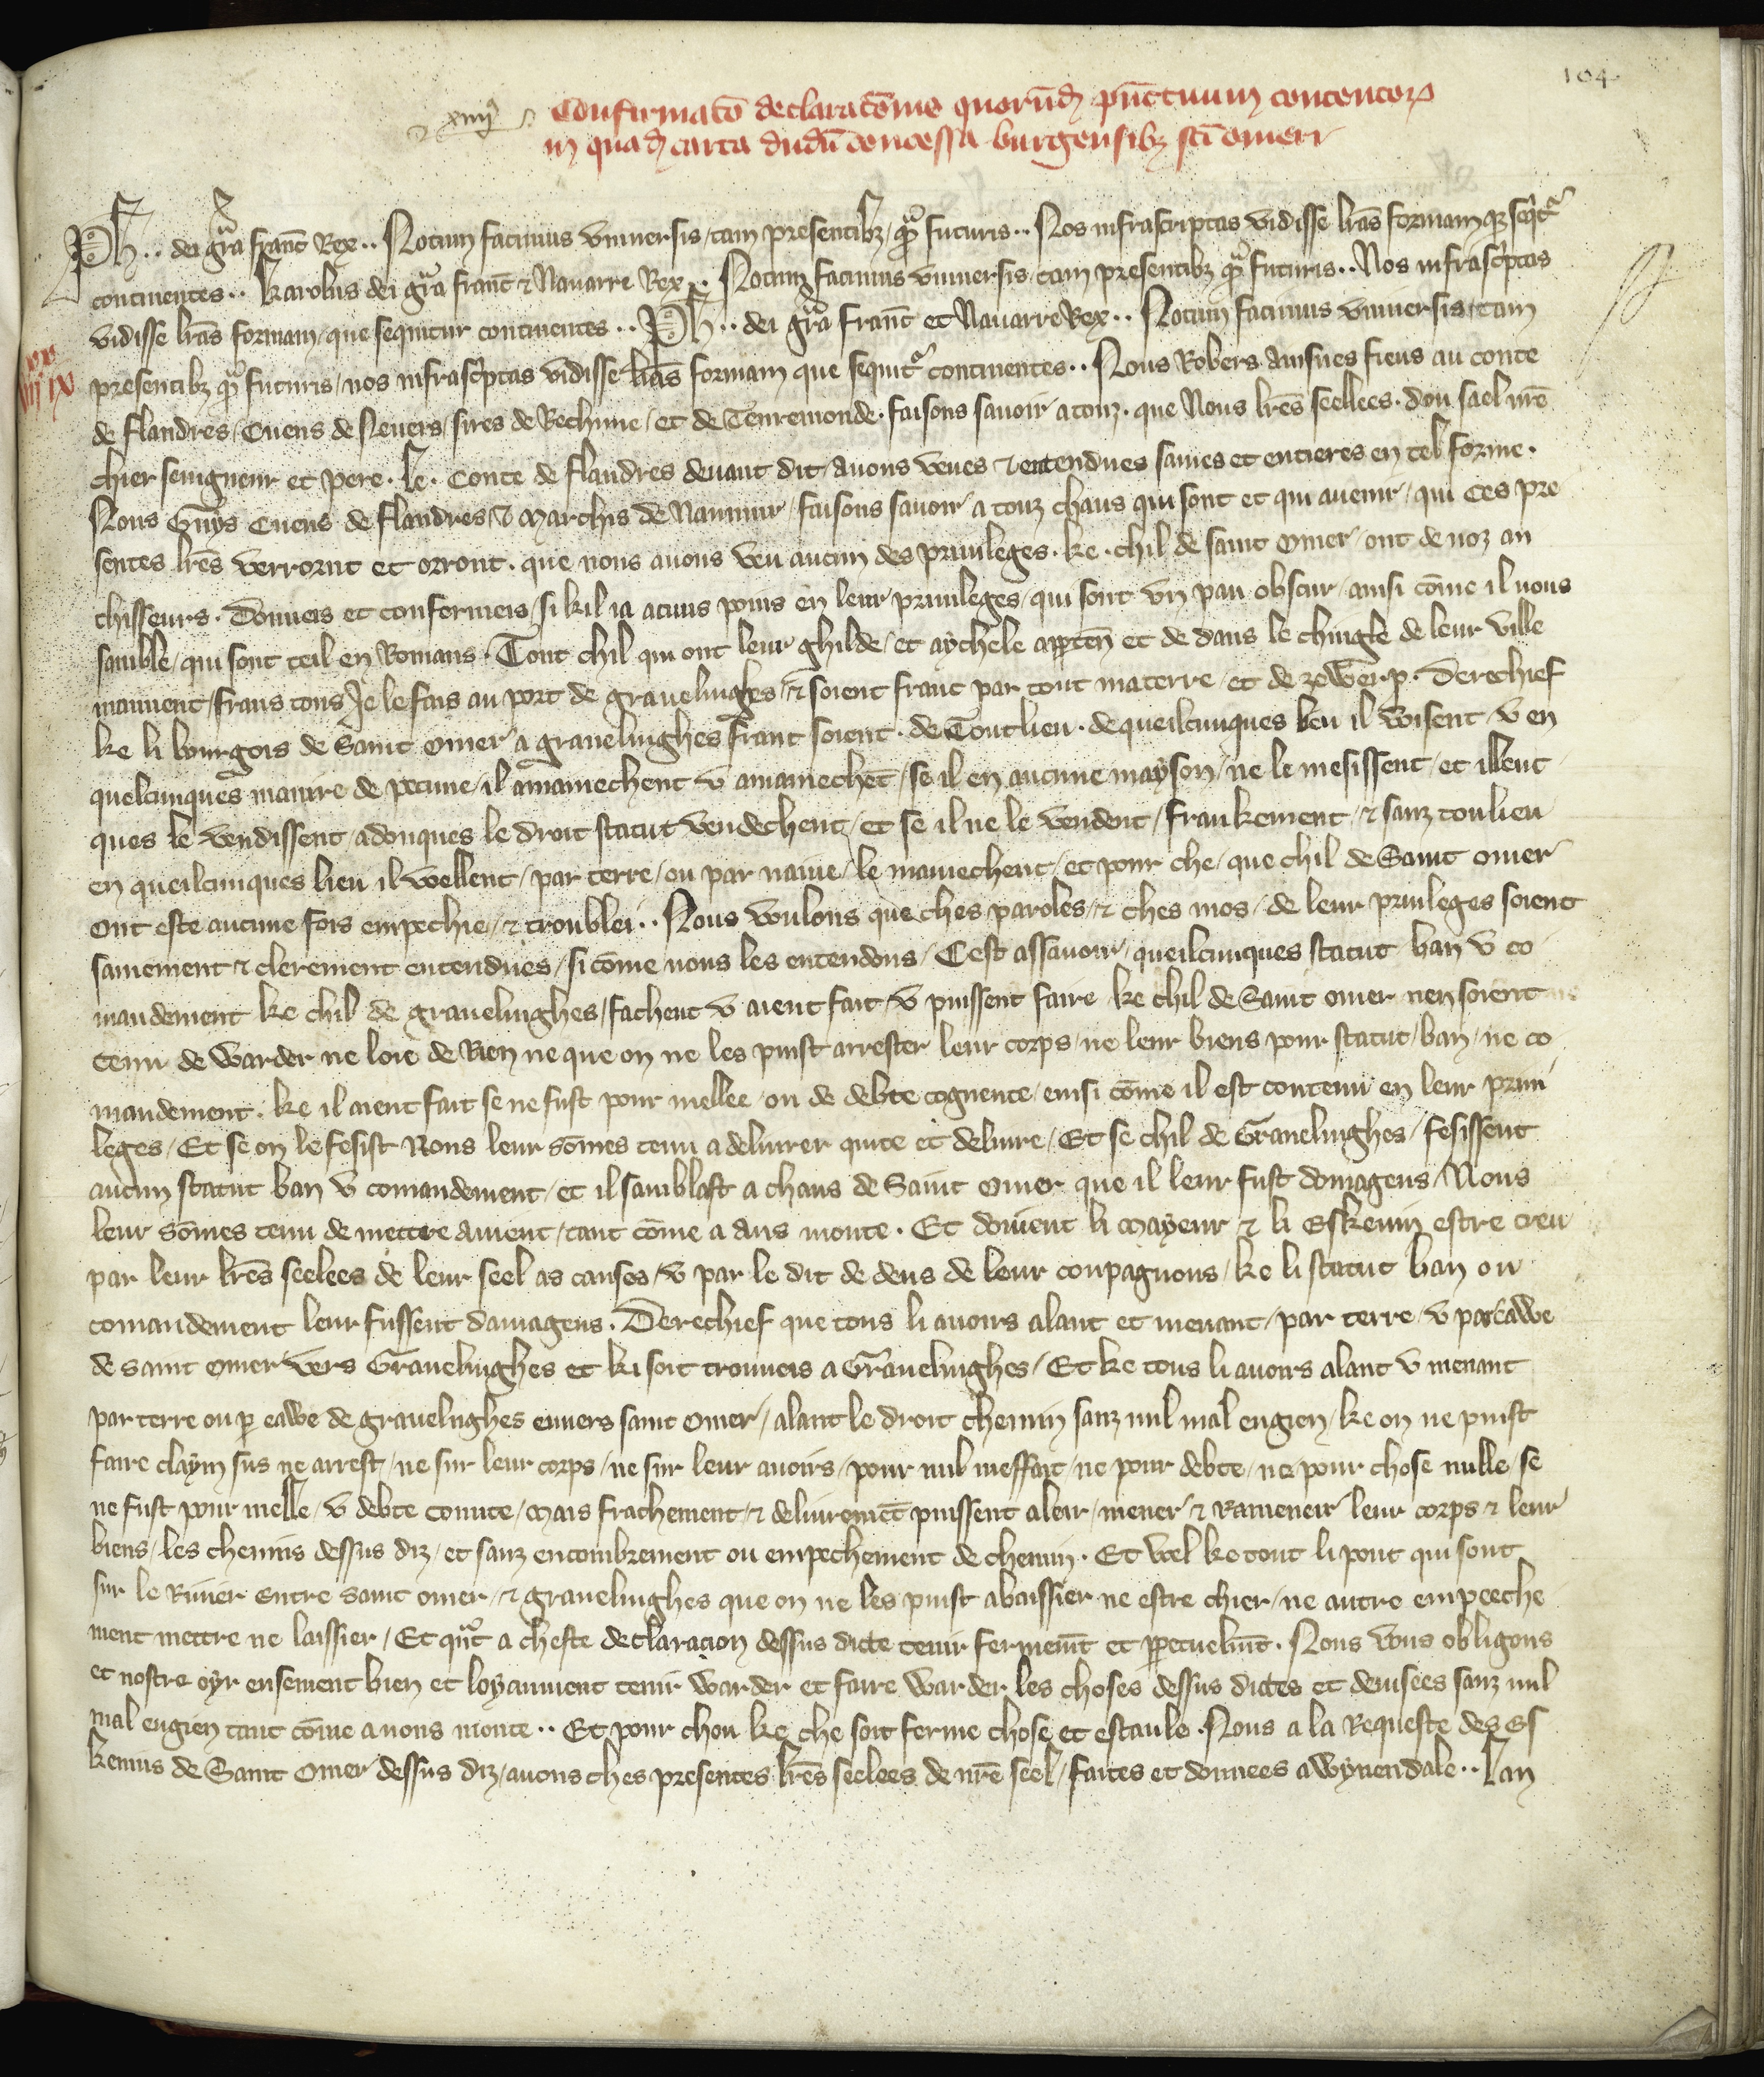 104
xiiijᵃ Confirmatō declaratōnis quorūdꝫ pūctuum contentorꝝ
in quadꝫ carta dudū concessa burgensibꝫ sc̄i omeri
Ph .. dei gr̄a franc̄ Rex .. Notum facimus vniuersis / tam presentibꝫ / qᵃ̄ futuris .. Nos infrascriptas vidisse lr̄as formam qꝫ seqᵗʳ
continentes .. karolus dei gr̄a franc̄ ⁊ Nauarre Rex .. Notum facimus vniuersis / tam presentibꝫ qᵃ̄ futuris .. Nos infrasc̄ptas
vidisse lr̄as formam / que sequitur continentes .. Ph .. dei gr̄a franc̄ et Nauarre Rex .. Notum facimus vniuersis / tam
presentibꝫ qᵃ̄ futuris / nos infrasc̄ptas vidisse lr̄as formam que sequitᵣ continentes .. Nous Robers ainsnes fieus au conte
de flandres / Cuens de Neuers / sires de Bethune / et de Tenremonde . faisons sauoir a touz . que Nous lr̄es seellees . dou sael nr̄e
chier seingneur et pere . le . Conte de flandres deuant dit / auons veues ⁊ entendues saines et entieres en tel forme .
Nous Guys Cuens de flandres ⁊ Marchis de Nammur / faisons sauoir a touz chaus qui sont et qui auenir / qui ces pre
sentes lr̄es verront et orront . que nous auons veu aucun des priuileges . ke . chil de saint Omer / ont de noz an
chisseurs . Donneis et confermeis / si kil ia acuns poins en leur priuileges / qui sont vn pau obscur / ainsi cōme il nous
samble / qui sont teil en Romans . Tout chil qui ont leur ghilde / et aychele apꝑten̄ et de dans le chingle de leur ville
mainent / frans tous Je le fais au port de grauelinghes / ⁊ soient franc par tout materre / et de zewerp . Derechief
ke li bourgois de Saint Omer a grauelinghes franc soient . de Tontlieu . de queilcunques lieu il voisent / v en
quelcunques manire de pecune / il amainechent v amainechēt / se il en aucune mayson / ne le mesissent / et illeuc
ques le vendissent / adonques le droit statut vendechent / et se il ne le vendent / frankement / ⁊ sanz tonlieu
en queilcunques lieu il vellent / par terre / ou par naiue / le mainechent / et pour che / que chil de Saint Omer
ont este aucune fois empechie / ⁊ troublei .. Nous voulons que ches paroles / ⁊ ches mos / de leur priuileges soient
sainement ⁊ clerement entendues / si cōme nous les entendons / Cest assauoir / queilcunques statut ban v co
mandement ke chil de grauelinghes / fachent v aient fait / v puissent faire ke chil de Saint omer nen soient
tenu de warder ne loie de Rien ne que on ne les puist arrester leur corps / ne leur biens pour statut / ban / ne co
mandement . ke il aient fait se ne fust pour mellee / ou de debte cognente / ensi cōme il est contenu en leur priui
leges / Et se on le fesist Nous leur sōmes tenu a deliurer quite et deliure / Et se chil de Grauelinghes / fesissent
aucun statut ban v comandement / et il samblast a chaus de Saint Omer que il leur fust domageus / Nous
leur sōmes tenu de mettre a nient / tant cōme a aus monte . Et doiuent li Mayeur ⁊ li Eskeuin estre creu
par leur lr̄es seelees de leur seel as causes / v par le dit de deus de leur conpagnons / ke li statut ban ou
comandement leur fussent damageus . Derechief que tous li auoirs alant et menant / par terre / v par eawe
de saint omer vers Grauelinghes et ki soit trouueis a Grauelinghes / Et ke tous li auoirs alant v menant
par terre ou ꝑ eawe de grauelinghes enuers saint Omer / alant le droit chemin sanz nul mal engien / ke on ne puist
faire claym sus ne arrest / ne sur leur corps / ne sur leur auoirs / pour nul meffait / ne pour debte / ne pour chose nulle / se
ne fust pour melle / v debte conute / Mais frachement / ⁊ deliuremēt puissent aleir / mener ⁊ Rameneir leur corps ⁊ leur
biens / les chemins dessus diz / et sanz encombrement ou empechement de chemin . Et wel ke tout li pont qui sont
sur le Riuier entre Saint omer / ⁊ grauelinghes que on ne les puist abaissier ne estrechier / ne autre empeeche
ment mettre ne laissier / Et quāt a cheste declaracion dessus dicte tenir fermemt̄ et ꝑpetuelmt̄ . Nous vous obligons
et nostre oyr ensement bien et loyaument tenir warder et faire warder les choses dessus dictes et deuisees sanz nul
mal engien tant cōme a nous monte .. Et pour chou ke che soit ferme chose et estaule . Nous a la Requeste des Es
keuins de Saint Omer dessus diz / auons ches presentes lr̄es seelees de nr̄e seel / faites et donnees a wynendale .. Lan